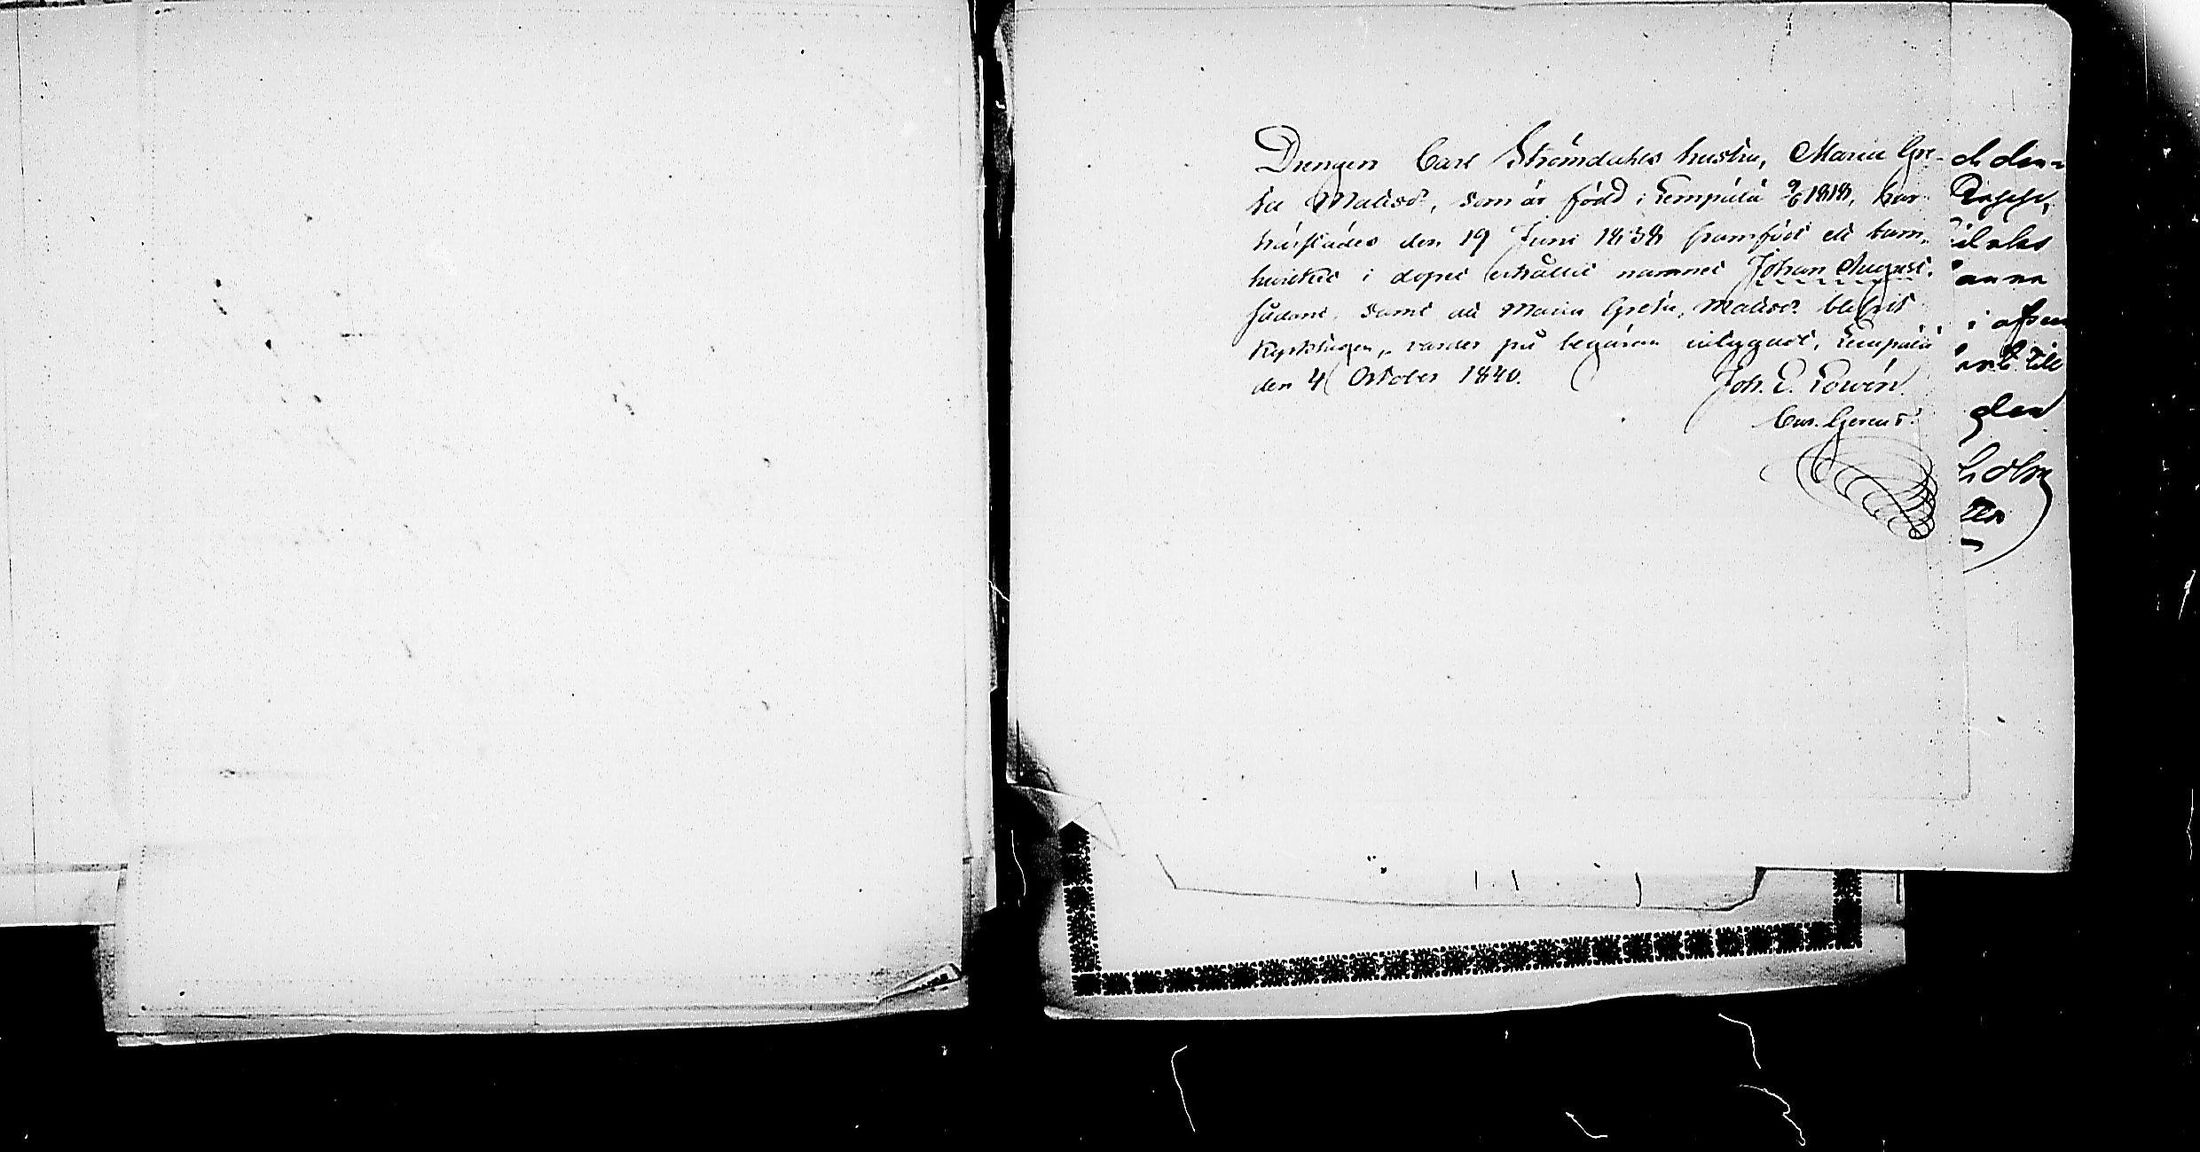 Drengen Carl Strömdahls hustru, Maria Gre-
ta Matisdr, som är född i Lempälä 9/6 1818, har
härstädes den 19 Juni 1838 framfödt ett barn,
hvilket i dopet erhållit namnet Johan August,
sådant, samt att Maria Greta Matisdr. blefvit
kyrktagen, varder på begäran intygadt, Lempälä
den 4 October 1840.
Joh. E.
ch den
i afsen
till
den
holm